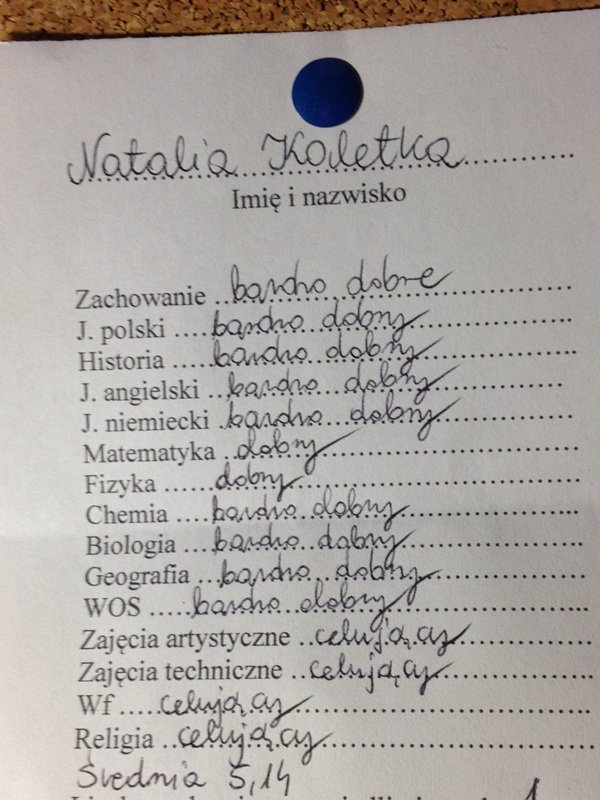 Natalia Kaletka
Imię i nazwisko
Zachowanie bardzo dobre
J. polski bardzo dobry
Historia bardzo dobry
J. angielski bardzo dobry
J. niemiecki bardzo dobry
Matematyka dobry
Fizyka dobry
Chemia bardzo dobry
Biologia bardzo dobry
Geografia bardzo dobry
WOS bardzo dobry
Zajęcia artystyczne celujący
Zajęcia techniczne celujący
Wf celujący
Religia celujący
Średnia 5,14